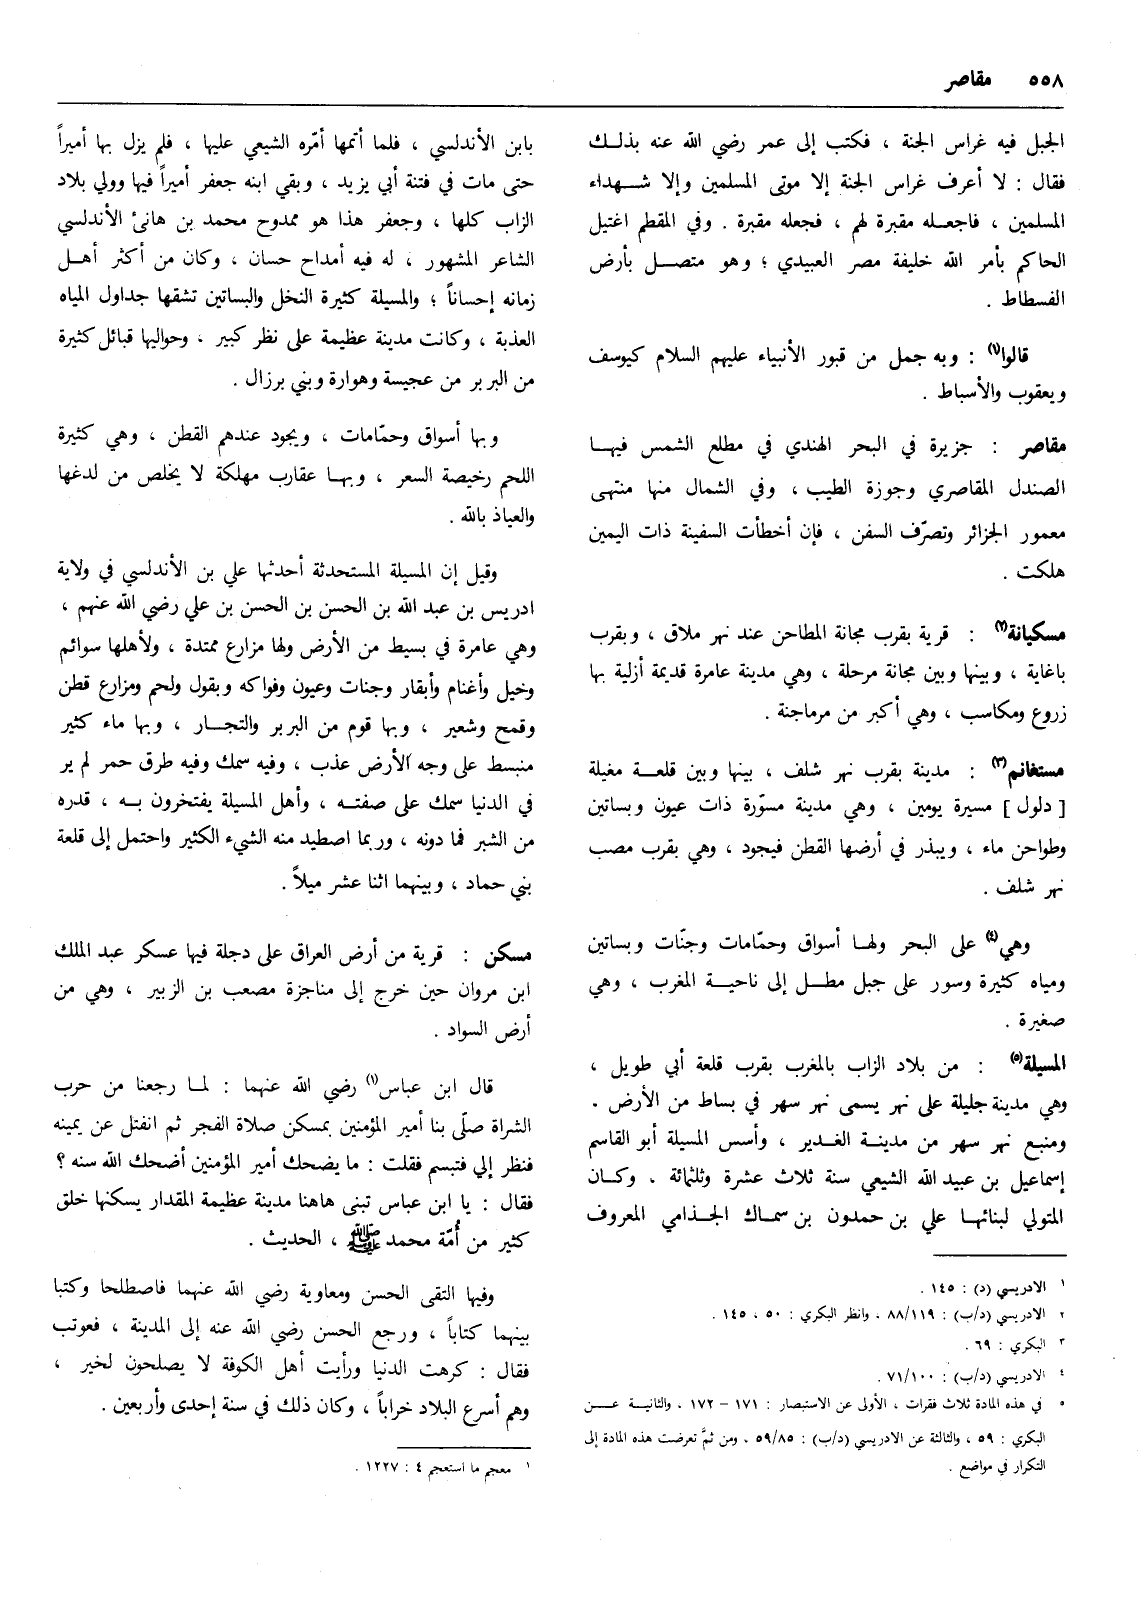 ٥٥٨ مقاصر
الجبل فيه غراس الجنة ، فكتب إلى عمر رضي الله عنه بذلك
فقال : لا أعرف غراس الجنة إلا موتى المسلمين وإلا شهداء
المسلمين ، فاجعله مقبرة لهم ، فجعله مقبرة . وفي المقطم اغتيل
الحاكم بأمر الله خليفة مصر العبيدي ؛ وهو متصل بأرض
الفسطاط .
قالوا(١) : وبه جمل من قبور الأنبياء عليهم السلام كيوسف
ويعقوب والأسباط .
مقاصر : جزيرة في البحر الهندي في مطلع الشمس فيها
الصندل المقاصري وجوزة الطيب ، وفي الشمال منها منتهى
معمور الجزائر وتصرّف السفن ، فإن أخطأت السفينة ذات اليمين
هلكت .
مسكيانة(٢) : قرية بقرب مجانة المطاحن عند نهر ملاق ، وبقرب
باغاية ، وبينها وبين مجانة مرحلة ، وهي مدينة عامرة قديمة أزلية بها
زروع ومكاسب ، وهي أكبر من مرماجنة .
مستغانم(٣) : مدينة بقرب نهر شلف ، بينها وبين قلعة مغيلة
[ دلول ] مسيرة يومين ، وهي مدينة مسوّرة ذات عيون وبساتين
وطواحن ماء ، ويبذر في أرضها القطن فيجود ، وهي بقرب مصب
نهر شلف .
وهي(٤) على البحر ولها أسواق وحمّامات وجنّات وبساتين
ومياه كثيرة وسور على جبل مطل إلى ناحية المغرب ، وهي
صغيرة .
المسيلة(٥) : من بلاد الزاب بالمغرب بقرب قلعة أبي طويل ،
وهي مدينة جليلة على نهر يسمى نهر سهر في بساط من الأرض .
ومنبع نهر سهر من مدينة الغدير ، وأسس المسيلة أبو القاسم
إسماعيل بن عبيد الله الشيعي سنة ثلاث عشرة وثلثمائة . وكان
المتولي لبنائها علي بن حمدون بن سماك الجذامي المعروف
١ الادريسي (د) : ١٤٥ .
٢ الادريسي (د/ب) : ٨٨/١١٩ . وانظر البكري : ٥٠ ، ١٤٥ .
٣ البكري : ٦٩ .
٤ الادريسي (د/ب) : ٧١/١٠٠ .
٥ في هذه المادة ثلاث فقرات ، الأولى عن الاستبصار : ١٧١ – ١٧٢ ، والثانية عن
البكري : ٥٩ ، والثالثة عن الادريسي (د/ب) : ٥٩/٨٥ ، ومن ثمَّ تعرضت هذه المادة إلى
التكرار في مواضع .
بابن الأندلسي ، فلما أتمها أمّره الشيعي عليها ، فلم يزل بها أميراً
حتى مات في فتنة أبي يزيد ، وبقي ابنه جعفر أميراً فيها وولي بلاد
الزاب كلها ، وجعفر هذا هو ممدوح محمد بن هانئ الأندلسي
الشاعر المشهور ، له فيه أمداح حسان ، وكان من أكثر أهل
زمانه إحساناً ؛ والمسيلة كثيرة النخل والبساتين تشقها جداول المياه
العذبة ، وكانت مدينة عظيمة على نظر كبير ، وحواليها قبائل كثيرة
من البربر من عجيسة وهوارة وبني برزال .
وبها أسواق وحمّامات ، ويجود عندهم القطن ، وهي كثيرة
اللحم رخيصة السعر ، وبها عقارب مهلكة لا يخلص من لدغها
والعياذ بالله .
وقيل إن المسيلة المستحدثة أحدثها علي بن الأندلسي في ولاية
ادريس بن عبد الله بن الحسن بن الحسن بن علي رضي الله عنهم ،
وهي عامرة في بسيط من الأرض ولها مزارع ممتدة ، ولأهلها سوائم
وخيل وأغنام وأبقار وجنات وعيون وفواكه وبقول ولحم ومزارع قطن
وقمح وشعير ، وبها قوم من البربر والتجار ، وبها ماء كثير
منبسط على وجه الأرض عذب ، وفيه سمك وفيه طرق حمر لم ير
في الدنيا سمك على صفته ، وأهل المسيلة يفتخرون به ، قدره
من الشبر فما دونه ، وربما اصطيد منه الشيء الكثير واحتمل إلى قلعة
بني حماد ، وبينهما اثنا عشر ميلاً .
مسكن : قرية من أرض العراق على دجلة فيها عسكر عبد الملك
ابن مروان حين خرج إلى مناجزة مصعب بن الزبير ، وهي من
أرض السواد .
قال ابن عباس(١) رضي الله عنهما : لما رجعنا من حرب
الشراة صلّى بنا أمير المؤمنين بمسكن صلاة الفجر ثم انفتل عن يمينه
فنظر إلي فتبسم فقلت : ما يضحك أمير المؤمنين أضحك الله سنه ؟
فقال : يا ابن عباس تبنى هاهنا مدينة عظيمة المقدار يسكنها خلق
كثير من أُمّة محمد ﷺ ، الحديث .
وفيها التقى الحسن ومعاوية رضي الله عنهما فاصطلحا وكتبا
بينهما كتاباً ، ورجع الحسن رضي الله عنه إلى المدينة ، فعوتب
فقال : كرهت الدنيا ورأيت أهل الكوفة لا يصلحون لخير ،
وهم أسرع البلاد خراباً ، وكان ذلك في سنة إحدى وأربعين .
١ معجم ما استعجم ٤ : ١٢٢٧ .